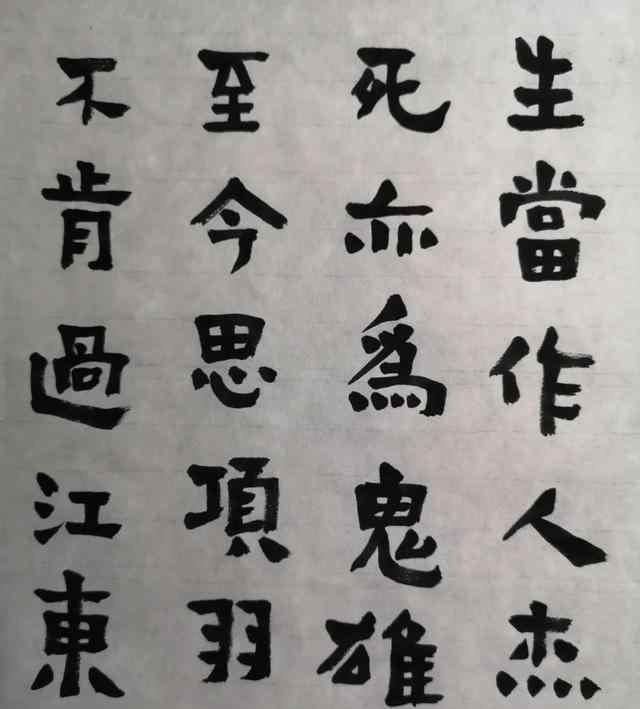 生當作人杰
死亦爲鬼雄
至今思項羽
不肯過江東